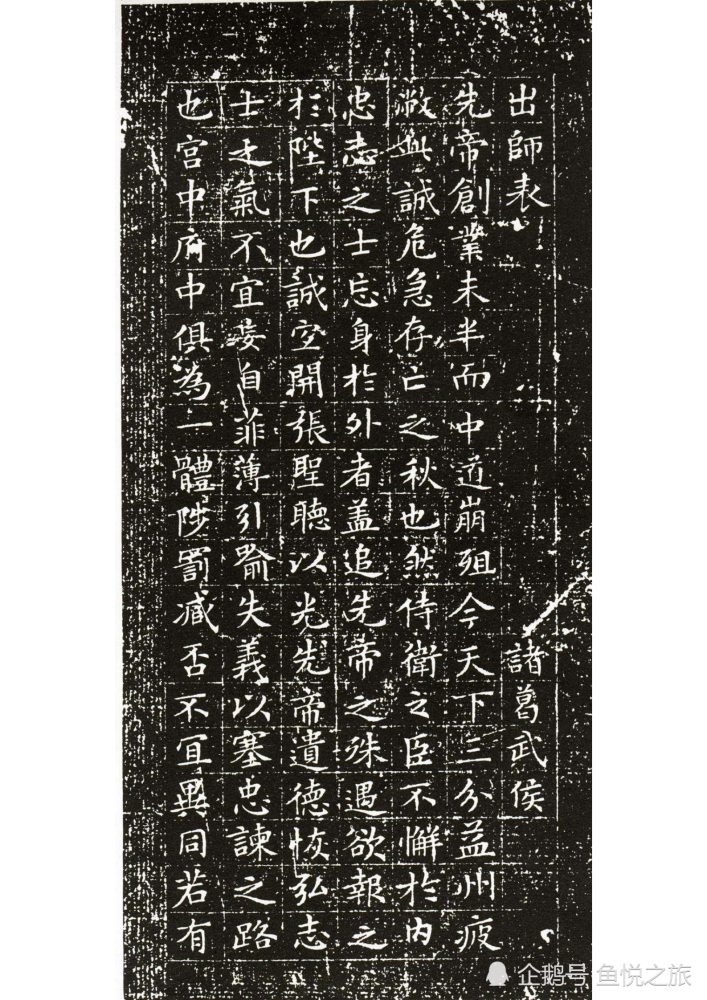 出師表 諸葛武侯
先帝創業未半而中道崩殂今天下三分益州疲
敝此誠危急存亡之秋也然侍衛之臣不懈於内
忠志之士忘身於外者蓋追先帝之殊遇欲報之
於陛下也誠宜開張聖聽以光先帝遺德恢弘志
士之氣不宜妄自菲薄引喻失義以塞忠諫之路
也宮中府中俱為一體陟罰臧否不宜異同若有
企鹅号 鱼悦之旅